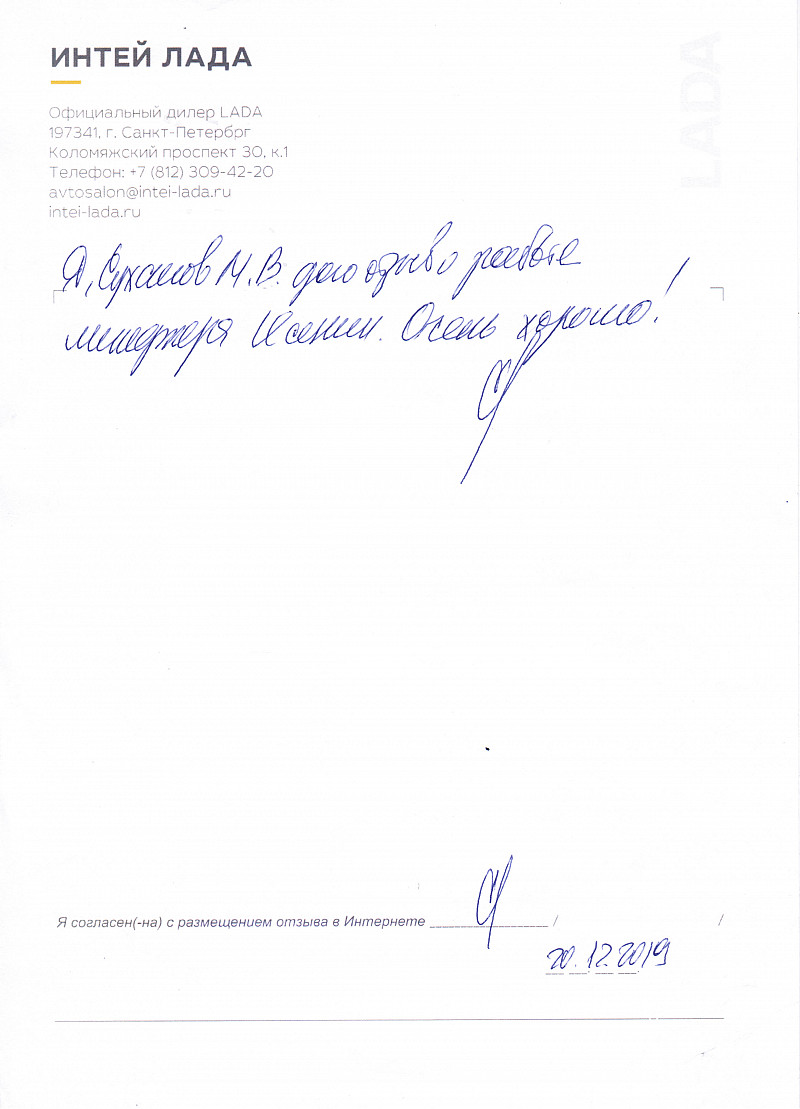 ИНТЕЙ ЛАДА
LADA
Официальный дилер LADA
197341, г. Санкт-Петербрг
Коломяжский проспект 30, к.1
Телефон: +7 (812) 309-42-20
avtosalon@intei-lada.ru
intei-lada.ru
Я, Суханов М.В. даю отзыв о работе
менеджера Есении. Очень хорошо!
Я согласен(-на) с размещением отзыва в Интернете / /
20.12.2019